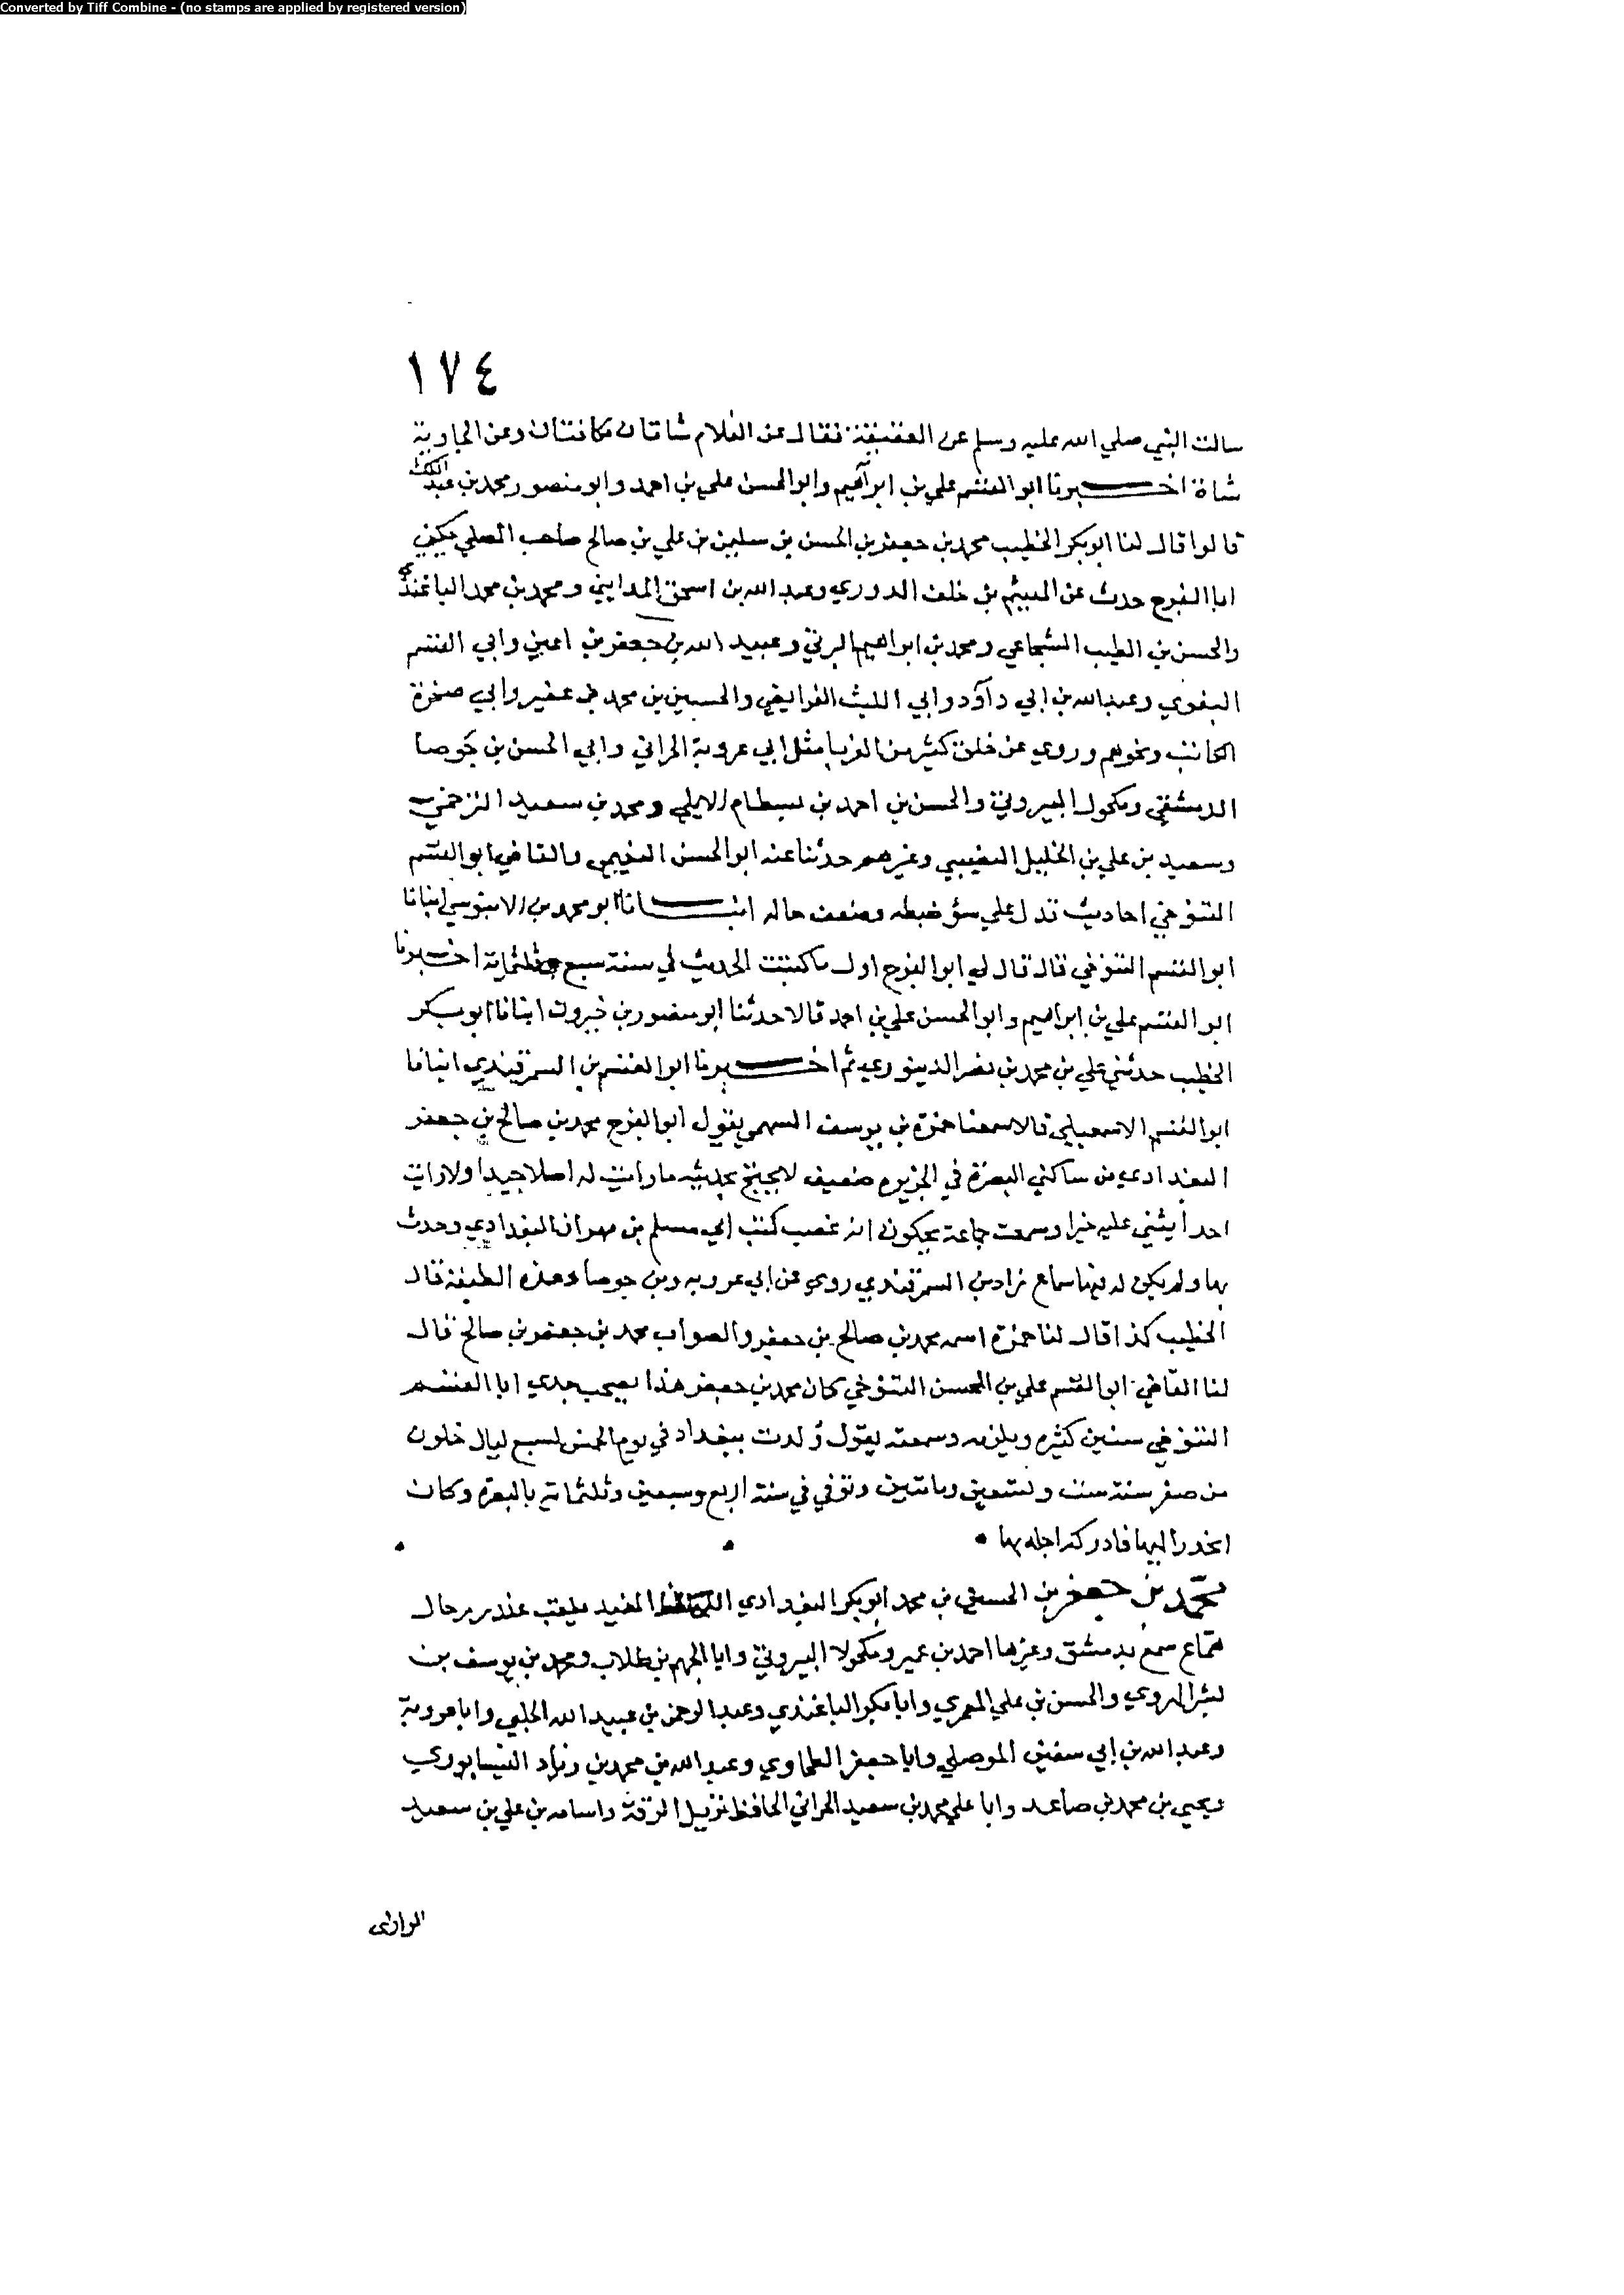 Converted by Tiff Combine - (no stamps are applied by registered version)
١٧٤
سالت النبي صلي الله عليه وسلم عن العقيقة فقال عن الغلام شاتان مكافتان وعن الجارية
شاة اخبرنا ابو القسم علي بن ابراهيم وابو الحسن علي بن احمد وابو منصور محمد بن عبد الملك
قالوا قال لنا ابو بكر الخطيب محمد بن جعفر بن الحسن بن سليمن بن علي بن صالح صاحب المصلي يكني
ابا الفرج حدث عن الهيثم بن خلف الدوري وعبد الله بن اسحق المدايني ومحمد بن محمد الباغندي
والحسن بن الطيب الشجاعي ومحمد بن ابراهيم البرتي وعبيد الله بن جعفر بن اعين وابي القسم
البغوي وعبد الله بن ابي داود وابي الليث الفرايضي والحسين بن محمد بن عفير وابي صخرة
الكاتب ونحوهم وروي عن خلق كثير من الغربا مثل ابي عروبة الحراني وابي الحسن بن جوصا
الدمشقي ومكحول البيروتي والحسن بن احمد بن بسطام الايلي ومحمد بن سعيد الترخمي
وسعيد بن علي بن الخليل النصيبي وغيرهم حدثنا عنه ابو الحسن النعيمي والقاضي ابو القسم
التنوخي احاديث تدل علي سؤ ضبطه وضعف حاله انبانا ابو محمد بن الابنوسي انبانا
ابو القسم التنوخي قال قال لي ابو الفرج اول ما كتبت الحديث في سنة سبع وثلثماية اخبرنا
ابو القسم علي بن ابراهيم وابو الحسن علي بن احمد قالا حدثنا ابو منصور بن خيرون انبانا ابو بكر
الخطيب حدثني علي بن محمد بن نصر الدينوري ثم اخبرنا ابو القسم بن السمرقندي انبانا
ابو القسم الاسمعيلي قالا سمعنا حمزة بن يوسف السهمي يقول ابو الفرج محمد بن صالح بن جعفر
البغدادي من ساكني البصرة في الجزيره ضعيف لا يحتج بحديثه ما رايت له اصلا جيدا ولا رايت
احدا يثني عليه خيرا وسمعت جماعة يحكون انه غصب كتب ابي مسلم بن مهران البغدادي وحدث
بها ولم يكن له فيها سماع زاد بن السمرقندي روي عن ابي عروبه وبن جوصا وهذه الطبقة قال
الخطيب كذا قال لنا حمزة اسمه محمد بن صالح بن جعفر والصواب محمد بن جعفر بن صالح قال
لنا القاضي ابو القسم علي بن المحسن التنوخي كان محمد بن جعفر هذا يصحب جدي ابا القسم
التنوخي سنين كثيره ويلزمه وسمعته يقول ولدت ببغداد في يوم الخميس لسبع ليال خلون
من صفر سنة ست وتسعين وماتين وتوفي في سنة اربع وسبعين وثلثماية بالبصرة وكان
انحدر اليها فادركه اجله بها
محمد بن جعفر بن الحسين بن محمد ابو بكر البغدادي المفيد يلقب غندر رحال
جماع سمع بدمشق وغيرها احمد بن عمير ومكحولا البيروتي وابا الجهم بن طلاب ومحمد بن يوسف بن
بشر الهروي والحسن بن علي المعمري وابا بكر الباغندي وعبد الرحمن بن عبيد الله الحلبي وابا عروبة
وعبد الله بن ابي سفين الموصلي وابا جعفر الطحاوي وعبد الله بن محمد بن زياد النيسابوري
ويحيي بن محمد بن صاعد وابا علي محمد بن سعيد الحراني الحافظ نزيل الرقة واسامه بن علي بن سعيد
الرازي